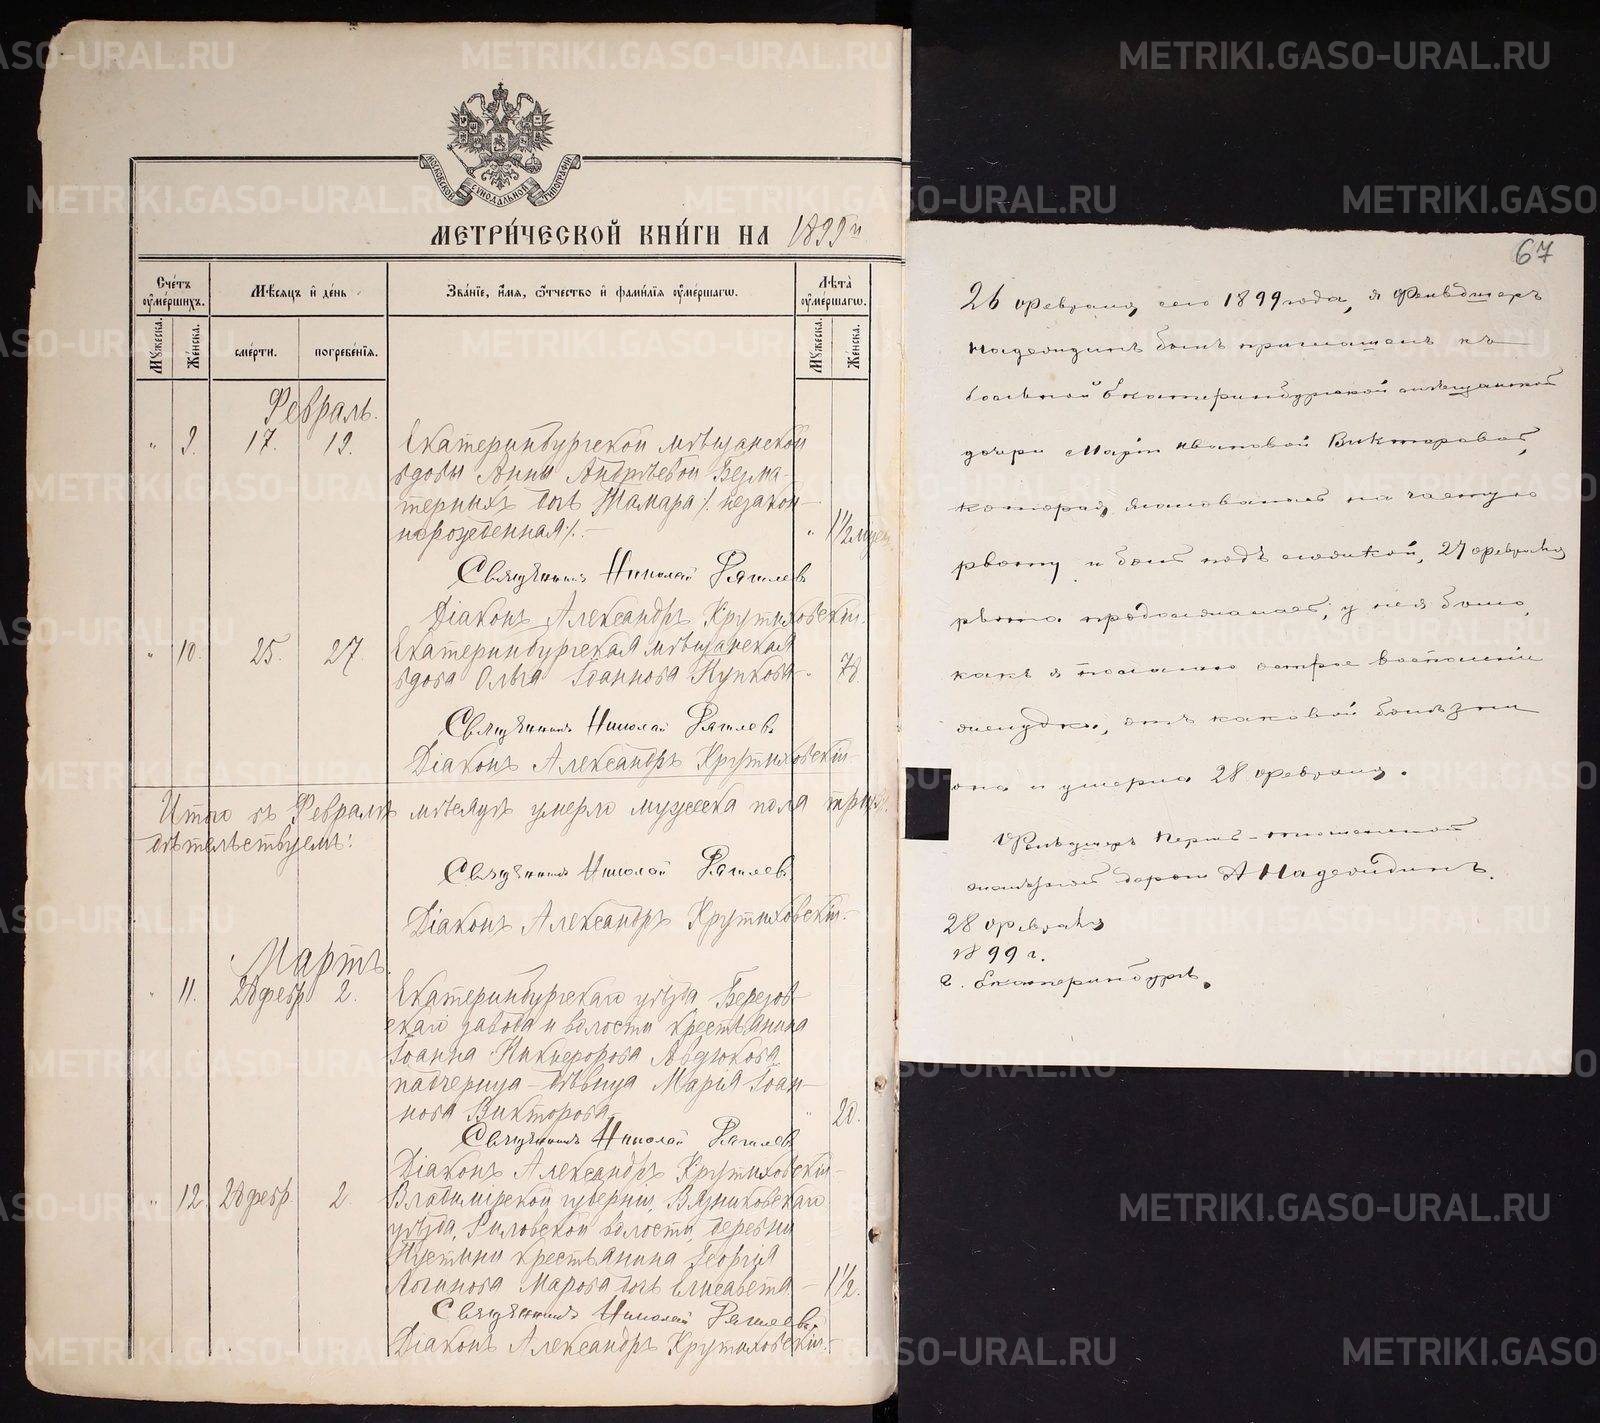 МОСКОВСКОЙ СѴНОДАЛЬНОЙ ТИПОГРАФІИ
МЕТРИ́ЧЕСКОЙ КНИ́ГИ НА 1899 й
Сче́тъ ᲂу҆ме́ршихъ.
Мѣ́сяцъ и҆ де́нь
Зва́нїе, и҆́мя, ѻ҆́тчество и҆ фами́лїя ᲂу҆ме́ршагѡ.
Лѣ́та ᲂу҆ме́ршагѡ.
Мꙋ́жеска. Же́нска.
сме́рти. погребе́нїя.
Мꙋ́жеска. Же́нска.
Февраль.
" 9. 17. 19. Екатеринбургской мѣщанской
вдовы Анны Андреевой Безма-
терныхъ дочь Тамара /: незакон-
норожденная :/. - " 1½ мѣсяц.
Священникъ Николай
Діаконъ Александръ Крутиховскій.
" 10. 25. 27. Екатеринбургская мѣщанская
вдова Ольга Іоаннова Пупкова - " 78.
Священникъ Николай
Діаконъ Александръ Крутиховскій
Итого въ Февралѣ мѣсяцѣ умерло мужеска пола три,
свидѣтельствуемъ:
Священникъ Николай
Діаконъ Александръ Крутиховскій.
Мартъ.
" 11. 28 февр 2. Екатеринбургскаго уѣзда Березов-
скаго завода и волости крестьянина
Іоанна Никифорова Авдюкова
падчерица - дѣвица Марія Іоан-
нова Викторова " 20.
Священникъ Николай
Діаконъ Александръ Крутиховскій
" 12. 28 февр 2. Владимірской губерніи, Вязниковскаго
уѣзда, волости, деревни
Пустыни крестьянина Георгія
Логинова Марова дочь Елисавета - 1½.
Священникъ Николай
Діаконъ Александръ Крутиховскій.
67
26 февраля сего 1899 года, я фельдшеръ
Надеждинъ былъ приглашенъ къ
больной Екатеринбургской мѣщанской
дочери Маріи Ивановой Викторовой,
которая жаловалась на частую
рвоту и боль подъ ложкой, 27 февраля
рвота продолжалась, у нея было,
какъ я полагаю острое воспаленіе
желудка, отъ каковой болѣзни
она и умерла 28 февраля.
Фельдшеръ Пермь-Тюменской
желѣзной дороги А Надеждинъ.
28 февраля
1899 г.
г. Екатеринбургъ.
METRIKI.GASO-URAL.RU